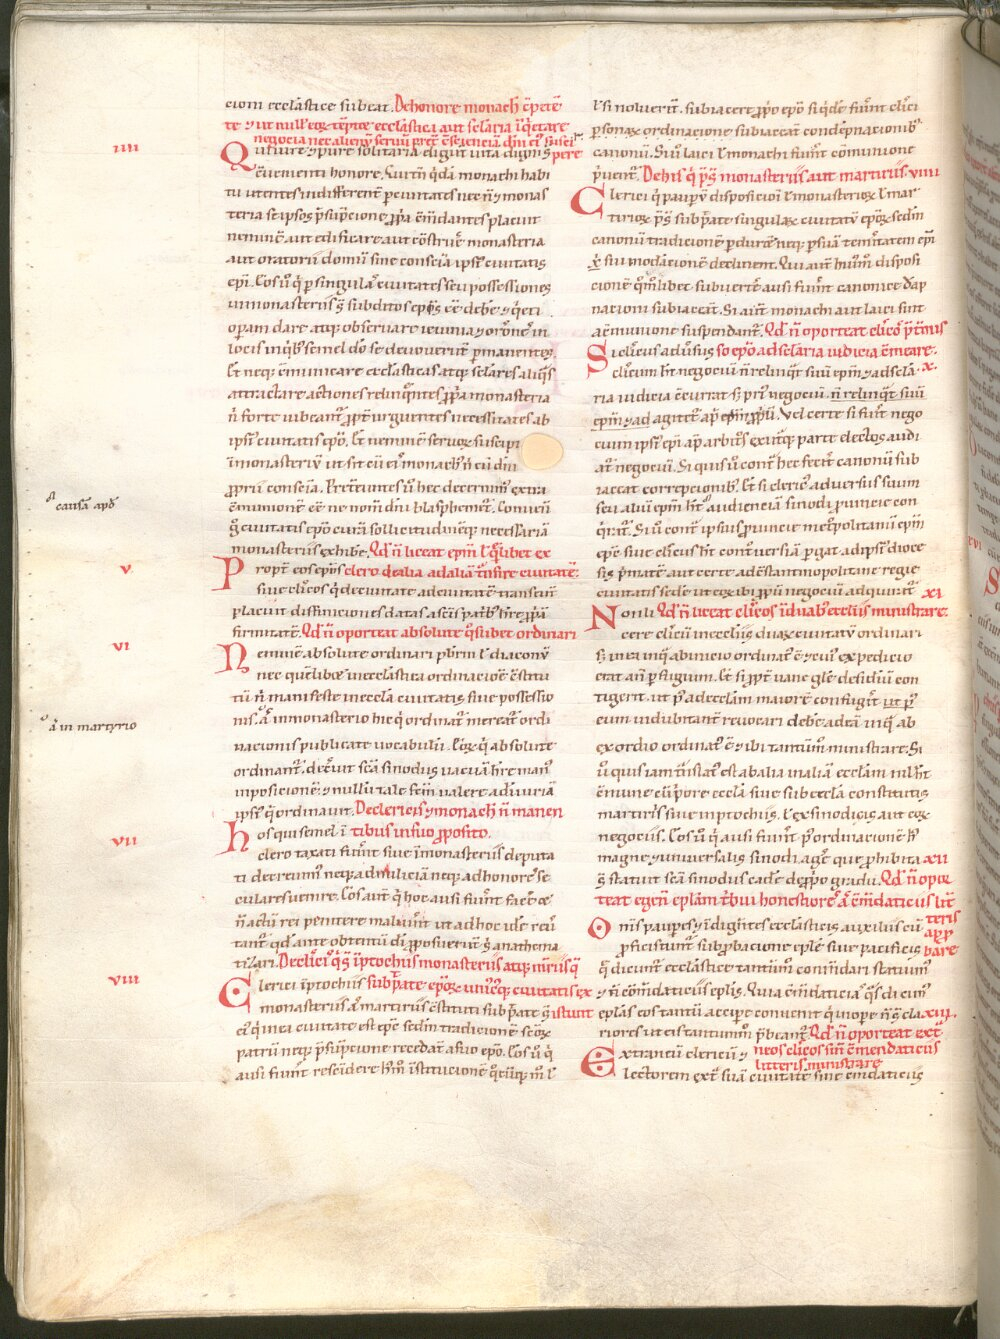 cioni eccl̄astice subeat. De honore monach̄ c̄pete
te ⁊ ut null' eoꝝ temere eccl̄astica aut sc̄laria īq̄etare
negocia nec alienū seruū preť c̄scienciā dm̄ ei' suscipere
IIII
Qui uere ⁊ pure solitariā digūt uitā digni s̄
c̄uenienti honore. Qm̄ quidā monachi habi
tu utentes indifferent̄ per ciuitates nec n̄ ⁊ monas
teria se ipsos p̄supcione ꝓpa c̄mdantes placuit
neminē aut edificare aut c̄struē monasteria
aut oratorii domū sine consciā ipsi' ciuitatis
ep̄i. Eos ū q̄ per singulas ciuitates seu possessiones
in monasteriis s̄ subditos ep̄is ēē debere ⁊ q̄eti
operam dare atq̄ obseruare ieiunia ⁊ or̄onē in
locis in q̄b' semel dō se deuouerūt permanentes.
Et neq̄ c̄municare eccl̄asticas atq̄ sc̄lares aliq̄s
attractare actiones relinq̄ntes ꝓpa monasteria
n̄ forte iubeant' ꝓpt̄ urguentes necessitates ab
ipsi' ciuitatis ep̄o. Et neminē seruoꝝ suscipi
ī monasteriū ut sit cū eis monach' n̄ cū dn̄i
ꝓprii consciā. Pret̄euntes ū hec decreuim' extra
c̄munionē eē ne nom̄ dn̄i blasphemet'. Conueni
ḡ ciuitatis ep̄o curā sollicitudinēq̄ necessariā
monasteriis exhibe. Qd̄ n̄ liceat ep̄m l' q̄libet ex
clero de alia ad aliā tn̄sire ciuitatē.
causā apd'
V
Propt̄ eos ep̄os
siue clericos q̄ de ciuitate ad ciuitatē transeūt
placuit diffiniciones datas a sc̄is patrib' hr̄e ꝓpā
firmitatē. Qd̄ n̄ oporteat absolute q̄libet ordinari
VI
Neminē absolute ordinari pb̄rm l' diaconū
nec quēlibet in eccl̄astica ordinacione c̄stitu
tū n̄ manifeste in eccl̄a ciuitatis siue possessio
nis. ā in monasterio hic q̄ ordinat' mereat' ordi
ā in martyrio
nacionis publicate uocabulū. Eos q̄ absolute
ordinant'. decreuit sc̄a sinodus uacuā hr̄e man'
imposicionē ⁊ nullū tale fcm̄ ualere ad iniuriā
ipsi' q̄ ordinauit. De clericis ⁊ monach̄ n̄ manen
tibus in suo ꝓposito.
VII
hos qui semel ī
clero taxati fuerint siue ī monasteriis deputa
ti decreuim' neq̄ ad miliciā neq̄ ad honores se
culares uenire. Eos aut̄ q̄ hoc ausi fuerint facere ⁊
n̄ acti rei penitere maluint ut ad hoc idē reu
tant' qd̄ ante obtentū dī ꝓposuerūt ḡ anathema
tizari. De clericis q̄ s̄ ī ptochiis monasteriis atq̄ mr̄iis q̄
sub p̄tate ep̄oꝝ uni'cuiq̄ ciuitatis existunt
VIII
Clerici ī ptochiis
monasteriis ā martiriis c̄stituti sub p̄tate q̄
ei' q̄ in ea ciuitate est ep̄c sedm̄ tradicionē sc̄oꝝ
patrū neq̄ p̄supcione recedāt a suo ep̄o. Eos ū q̄
ausi fuerint rescidere hm̄i īstitucionē q̄cūq̄ m̄ l'
l' si noluerīt. subiacere ꝓpo ep̄o siq̄dē fuerint clici
personaꝝ ordinacione subiaceāt condēpnacionib'
canonū. Siū laici l' monachi fuerint cōmunione
p̄uent'. De his q̄ p̄s̄ monasteriis aut martiriis. VIIII
Clerici q̄ pauperū disposicioni l' monasterioꝝ l' mar
tirioꝝ p̄s̄ sub p̄tate singulaꝝ ciuitatū ep̄oꝝ sedm̄
canonū tradicionē perdurēt neq̄ per suā temitatem ep̄i
sui modacionē declinent. Qui aut̄ hui'm̄ disposi
cionē q̄mlibet subuertē ausi fuerint canonice dāp
nacioni subiaceāt. Si aut̄ monachi aut laici sint
a c̄munione suspendant'. Qd̄ n̄ oporteat clicō p̄t̄mis
so ep̄o ad sc̄laria iudicia c̄meare.
X.
Si clicus aduersus
clicum ht̄ negociū n̄ relinq̄t suū ep̄m ⁊ ad secla
ria iudicia c̄currat s; pri' negociū n̄ relinq̄t suū
ep̄m ⁊ ad agitet' ap̄ ep̄m ꝓpriū. Vel certe si fuerit nego
cium ipsi' ep̄i ap̄ arbitros ex ut̄q̄ parte electos audi
at' negociū. Si quis ū cont̄ hec fecerit canonū sub
iaceat correpcionib'. Et si cleric' aduersus suum
seu aliū ep̄m ht̄ audienciā sinodi prouincie con
q̄rat'. Siū cont̄ ipsius prouincie met̄politanū ep̄m
ep̄c siue clicus ht̄ cont̄uersiā pergat ad ipsi' dioce
sis p̄matē aut certe ad c̄stantinopolitane regie
ciuitatis sedē ut eoꝝ ibi ꝓpriū negociū adquirat'
XI
Qd̄ n̄ liceat clicos ī duab' eccl̄iis ministrare.
Non li
cere clicū in eccl̄iis duaꝝ ciuitatū ordinari
s; in ea in q̄ ab inicio ordinat' ē ⁊ cui' expedicio
erat an̄ per fugium. Et si ꝓpt̄ uane glē desidiū con
tigerit. ut p' ad eccl̄am maiorē confugerit ut p'
cum indubitant̄ reuocari debere ad eā in q̄ ab
exordio ordinat' ē ⁊ ibi tantūm ministrare. Si
ū quis iam tn̄slat' est ab alia in aliā eccl̄am nil ht̄
c̄mune cū p̄ore eccl̄a siue sub eccl̄a constitutis
martiriis siue in ptochiis. l' exsinodiciis aut eoꝝ
negociis. Eos ū q̄ ausi fuerint p' ordinacionē h'
magne ⁊ uniuersalis sinodi agere que prohibita
s̄ statuit sc̄a sinodus cadere de ꝓpo gradu. Qd̄ n̄ opor
XII
teat egeñ epl̄am t̄bui honestiorē ā c̄mdaticiis litteris approbare
Oniis pauperes ⁊ īdigētes eccl̄asticis auxiliis cū
ꝓficiscunt' sub probacione epl̄e siue pacificis
q̄ dicunt' eccl̄astice tantūm com̄dari statuim'
⁊ n̄ c̄mdaticiis epl̄is. Quia c̄mdaticiā q̄s dicim'
epl̄as eos tantū accipere conuenit q̄ in opere n̄ s̄ cla
XIII.
riores ut eis tantummo p̄beant'. Qd̄ n̄ oporteat extra
neos clicos sine c̄mendaticiis
litteris ministrare
Extraneū clericū ⁊
lectorem extra suā ciuitatē sine c̄mdaticiis